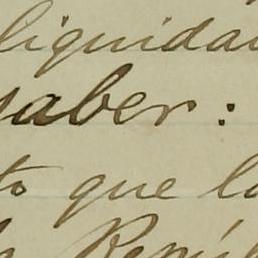 liquida
saber:
to que la
Repú